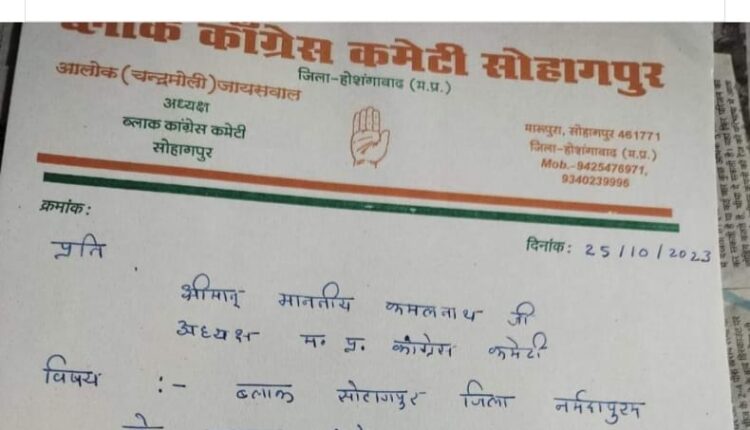 ब्लाक काँग्रेस कमेटी सोहागपुर
जिला-होशंगाबाद (म.प्र.)
आलोक (चन्द्रमोली) जायसवाल
अध्यक्ष
ब्लाक कांग्रेस कमेटी
सोहागपुर
सोहागपुर 461771
जिला-होशंगाबाद (म.प्र.)
Mob.-9425476971,
9340239996
क्रमांक:
दिनांक: 25/10/2023
प्रति
श्रीमान् माननीय कमलनाथ जी
अध्यक्ष म. प्र. कांग्रेस कमेटी
विषय :- ब्लाक सोहागपुर जिला नर्मदापुरम